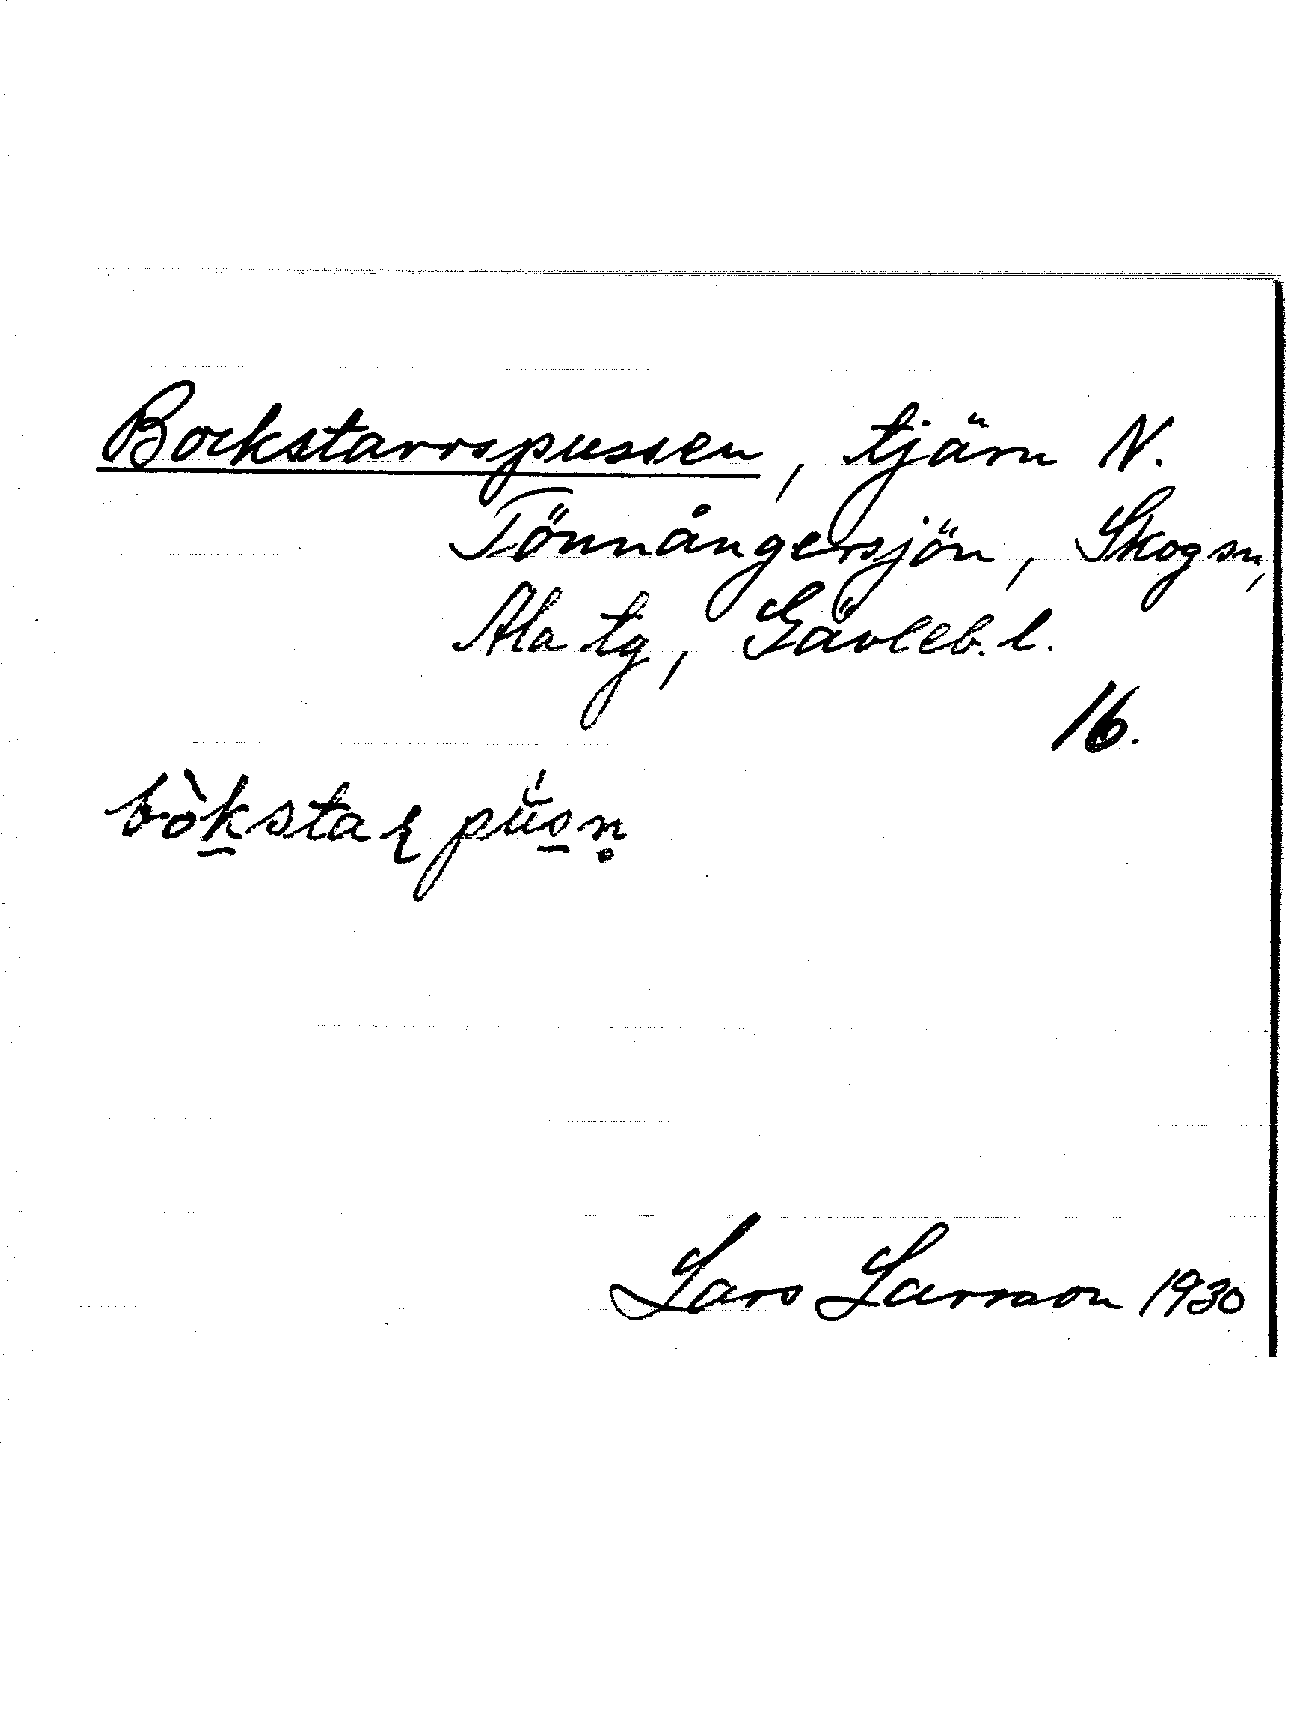 Bockstarrspussen, tjärn N.
Tönnångersjön, Skog sn,
Ala tg, Gävleb. l.
16.
bòk̲staʂ pús̲ṇ
Lars Larsson 1930